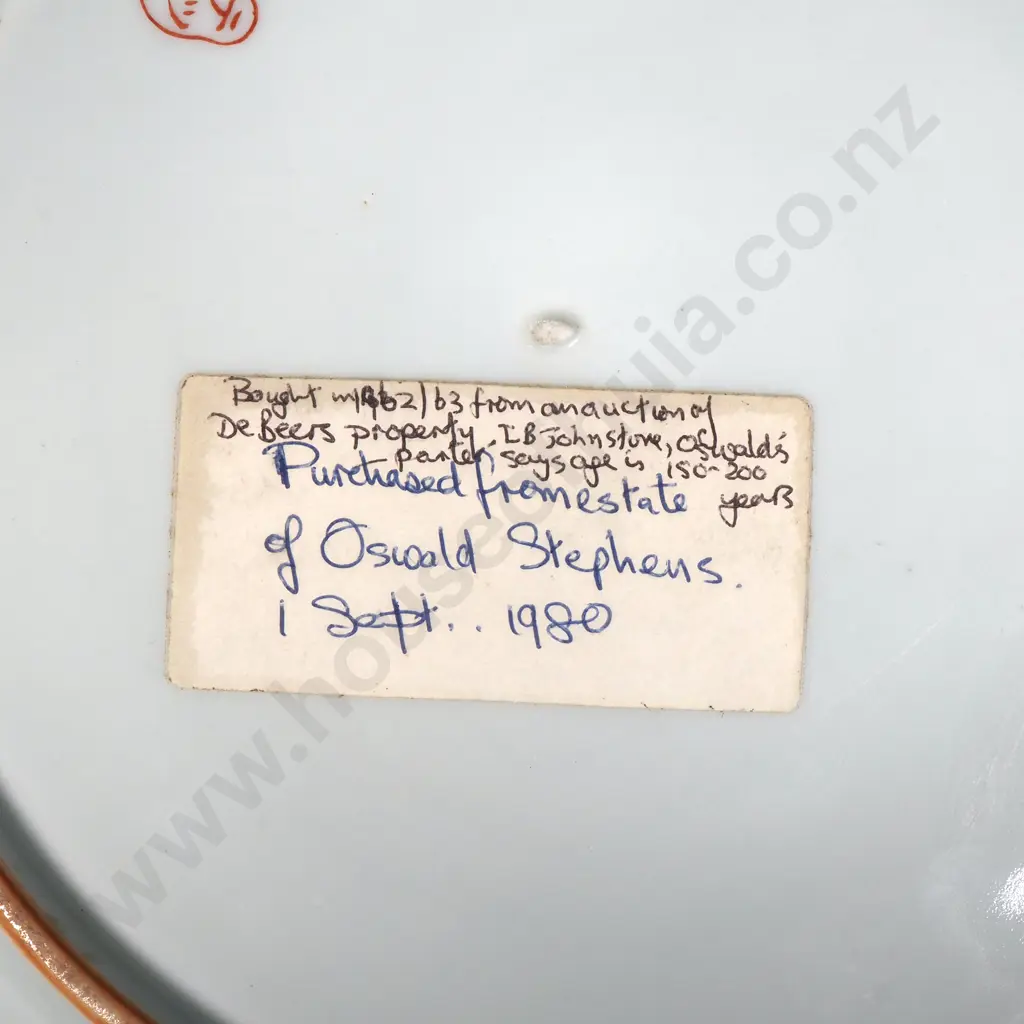 Bought in 1962/63 from an auction of
De Beers property. I.B Johnstone, Oswald's
parter says age is 150-200
years
Purchased from estate
of Oswald Stephens.
1 Sept.. 1980
www.houseofnujia.co.nz